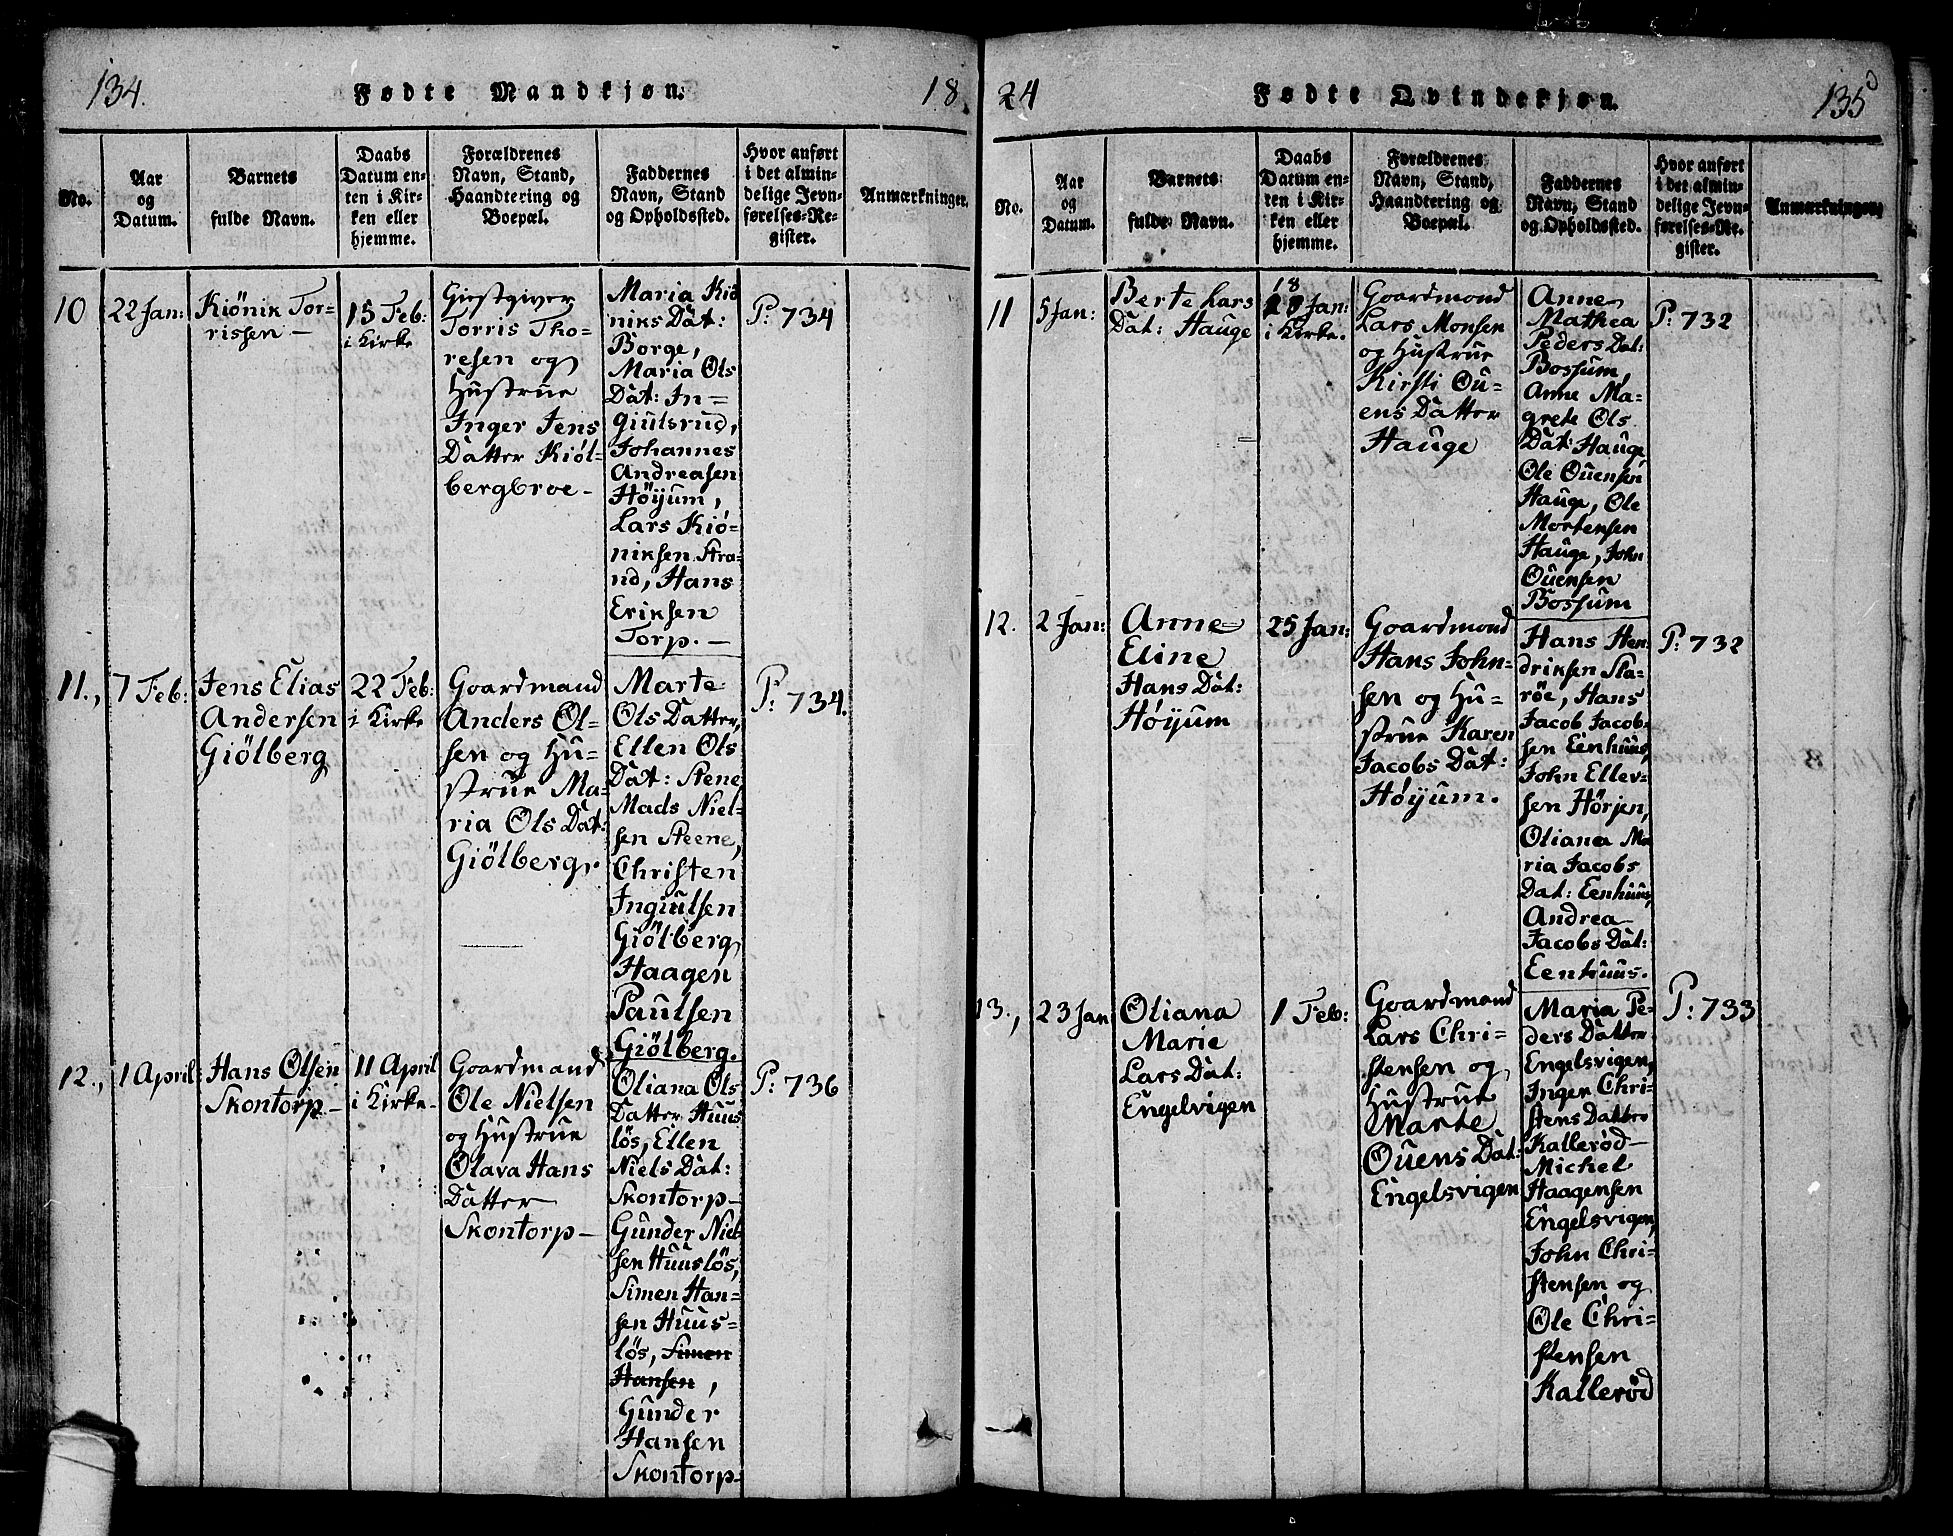 134.
Fødte Mandkjøn.
18
No.
Aar
og
Datum.
Barnets
fulde Navn.
Daabs
Datum en-
ten i Kir-
ken eller
hjemme.
Forældrenes
Navn, Stand,
Haandtering og
Boepæl.
Faddernes
Navn, Stand
og Opholdssted.
Hvor anført
i det almin-
delige Jevn-
førelses-Re-
gister.
Anmærkninger.
10
22 Jan:
Kiönik Tor-
rissen -
15 Feb:
i Kirke
Giestgiver
Torris Tho-
resen og
Hustrue
Inger Jens
Datter Kiöl-
bergbroe -
Maria Kiö
niks Dat:
Borge,
Maria Ols
Dat: In-
giulsrud,
Johannes
Andreasen
Höyum,
Lars Kiö-
niksen Stra-
nd, Hans
Eriksen
Torp. -
P: 734
11.,
7 Feb:
Jens Elias
Andersen
Giölberg
22 Feb:
i Kirke
Goardmand
Anders Ol-
sen og Hu-
strue Ma-
ria Ols Dat:
Giölberg.
Marte
Ols Datter,
Ellen Ols
Dat: Stene
Mads Niel-
sen Steene,
Christen
Ingiulsen
Giölberg,
Haagen
Paulsen
Giölberg.
P: 734.
12.,
1 April:
Hans Olsen
Skontorp -
11 April
i Kirke -
Goardmand
Ole Nielsen
og Hustrue
Olava Hans
Datter
Skontorp -
Oliana Ols
Datter Huus
lös, Ellen
Niels Dat:
Skontorp -
Gunder Niel
sen Huuslös,
Simen Han-
sen Huus-
lös, Simen
Hansen,
Gunder
Hansen
Skontorp -
P: 736
24
Fødte Qvindekjøn.
135
No.
Aar
og
Datum.
Barnets
fulde Navn.
Daabs
Datum en-
ten i Kir-
ken eller
hjemme.
Forældrenes
Navn, Stand,
Haandtering og
Boepæl.
Faddernes
Navn, Stand
og Opholdssted.
Hvor anført
i det almin-
delige Jevn-
førelses-Re-
gister.
Anmærkninger.
11
5 Jan:
Berte Lars
Dat: Hauge
18
Jan:
i Kirke.
Goardmand
Lars Monsen
og Hustrue
Kirsti Ou-
ens Datter
Hauge
Anne
Mathea
Peders Dat:
Bossum,
Anne Ma-
grete Ols
Dat: Hauge,
Ole Ouensen
Hauge, Ole
Mortensen
Hauge, John
Ouensen
Bossum
P: 732
12.
2 Jan:
Anne
Eline
Hans Dat:
Höyum
25 Jan:
Goardmand
Hans John-
sen og Hu-
strue Karen
Jacobs Dat:
Höyum.
Hans Hen
driksen Sta-
röe, Hans
Jacob Jacob-
sen Eenhuus,
John Ellev-
sen Hörjen,
Oliana Ma
ria Jacobs
Dat: Eenhuus,
Andrea
Jacobs Dat:
Eenhuus.
P: 732
13.,
23 Jan
Oliana
Marie
Lars Dat:
Engelvigen
1 Feb:
Goardmand
Lars Chri-
stensen og
Hustrue
Marte
Ouens Dat:
Engelsvigen
Maria Pe-
ders Datter
Engelsvigen,
Inger Chri-
stens Datter
Kalleröd
Michel
Haagensen
Engelsvigen,
John Chri-
stensen og
Ole Chri-
stensen
Kalleröd
P: 733